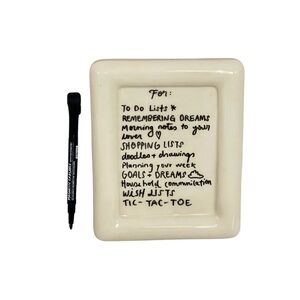 For:
TO DO LISTS *
REMEMBERING DREAMS
Morning notes to your
lover ♡
SHOPPING LISTS
doodles + drawings
Planning your week
GOALS + DREAMS
Household communication
WISH LISTS
TIC-TAC-TOE